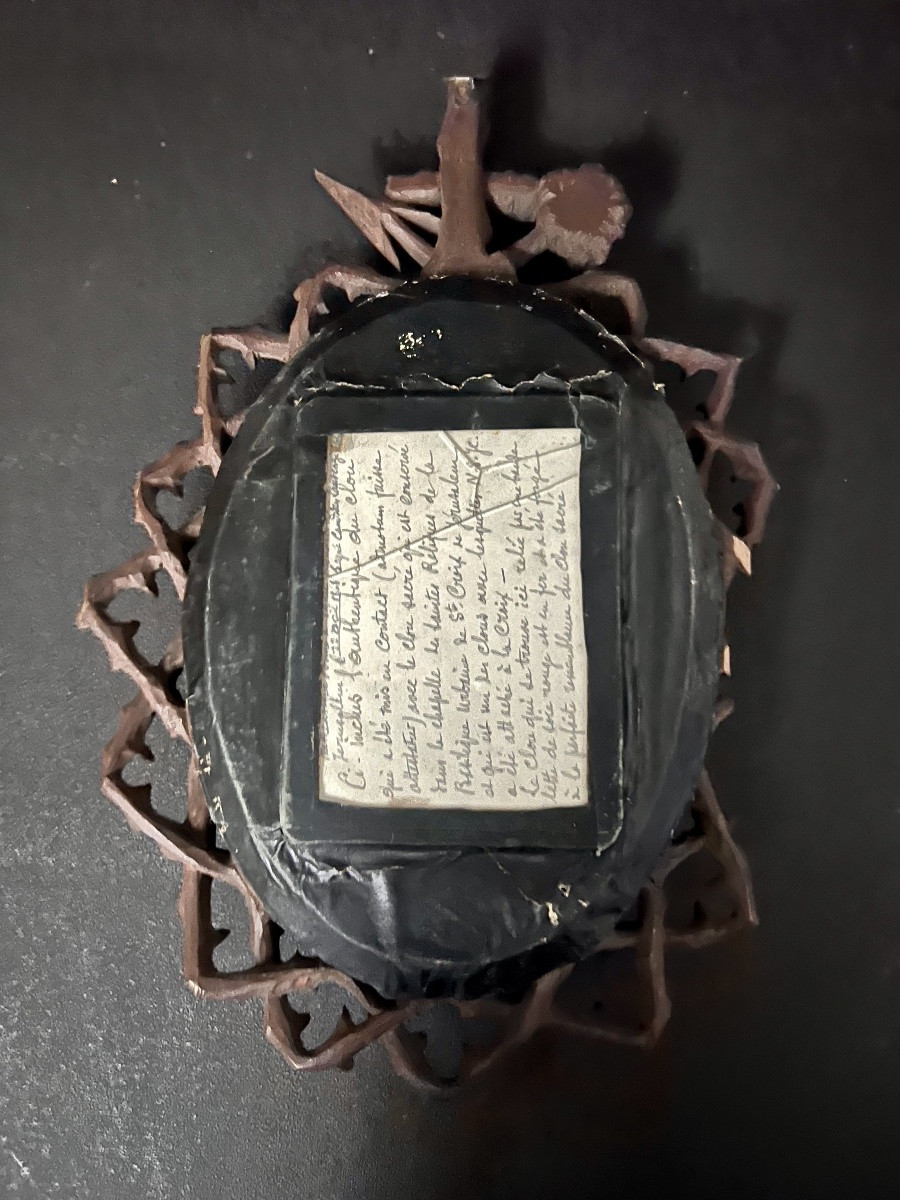 Ci-inclus l'authentique du clou
qui a été mis en contact (actuotum fuisse
attestatur) avec le clou sacré qui est conservé
dans la chapelle des saintes Reliques de la
Basilique de Ste Croix de Jérusalem
et qui est un des clous avec lesquels N.S.J.C.
a été attaché à la Croix —
Le clou qui se trouve ici relié par une
de soie rouge est en fer et a été forgé
à la parfaite ressemblance du clou sacré